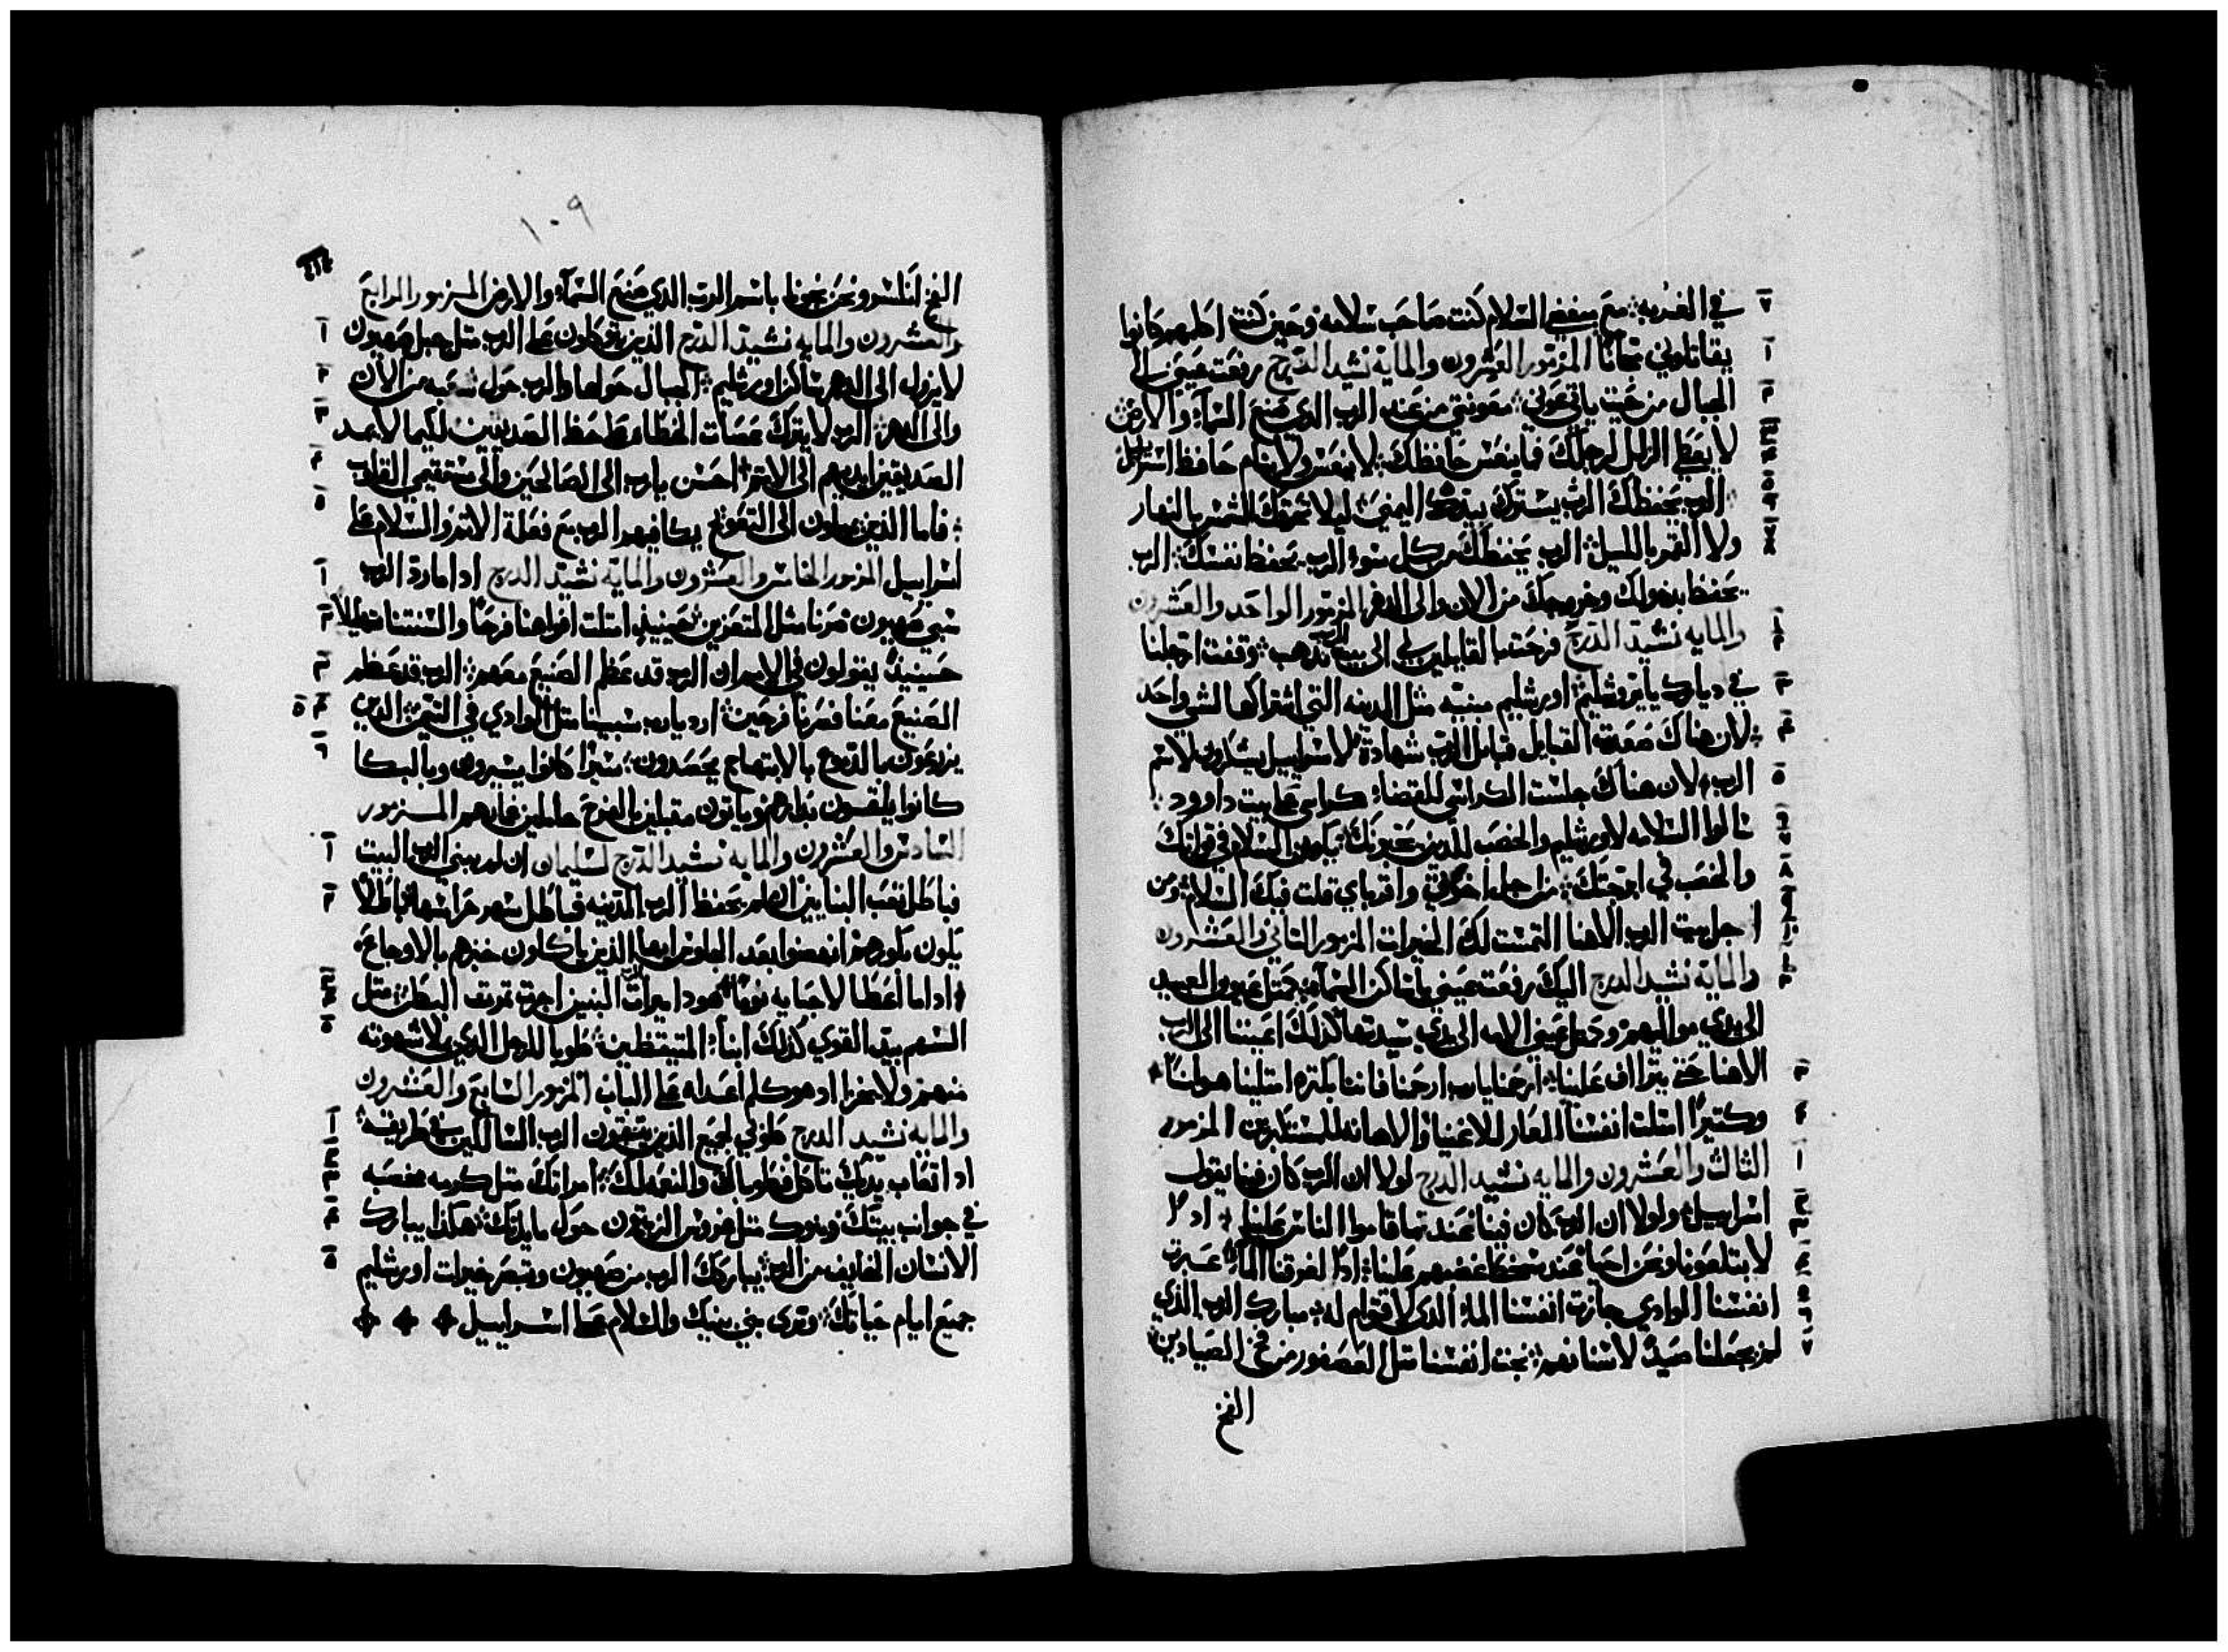 في الغربه مع مبغضي السلام كنت صاحب سلامه وحين كنت اكلمهم كانوا
يقاتلوني مجانًا المزمور العشرون والمايه نشيد الدرج رفعت عيني الى
الجبال من حيث ياتي عوني معونتي من عند الرب الذي صنع السمآء والارض
لا يعطي الزلل لرجلك فما ينعس حافظك لا ينعس ولا ينام حافظ اسراييل
الرب يحفظك الرب يسترك بيده اليمنى ليلا تحرقك الشمس بالنهار
ولا القمر بالليل الرب يحفظك من كل سوء الرب يحفظ نفسك الرب
يحفظ بدخولك وخروجك من الان والى الدهر المزمور الواحد والعشرون
والمايه نشيد الدرج فرحت بالقايلين لي الى بيت الرب نذهب وقفت ارجلنا
في ديارك يا يروشليم اورشليم مبنيه مثل المدينه التي اشتراكها لشي واحد
لان هناك صعدت القبايل قبايل الرب شهادة لاسراييل يشكرون لاسم
الرب لان هناك جلست الكراسي للقضاء كراسي على بيت داوود
سالوا السلامه لاورشليم والخصب للذين يحبونك يكون السلام في قواتك
والخصب في ابرجتك من اجل اخوتي واقرباي قلت فيك السلام ومن
اجل بيت الرب الاهنا التمست لك الخيرات المزمور الثاني والعشرون
والمايه نشيد الدرج اليك رفعت عيني يا ساكن السمآء مثل عيون العبيد
الى يدي مواليهم ومثل عيني الامه الى يدي سيدتها كذلك اعيننا الى الرب
الاهنا حتى يتراف علينا ارحمنا يارب ارحمنا فاننا بكتره امتلينا هوانًا
وكتيرًا امتلت انفسنا العار للاغنيا والاهانه للمستكبرين المزمور
الثالث والعشرون والمايه نشيد الدرج لولا ان الرب كان فينا يقول
اسراييل ولولا ان الرب كان فينا عند ما قاموا الناس علينا ادًا
لابتلعونا ونحن احيا عند سخط غضبهم علينا ادًا لغرقنا المآء عبرت
انفسنا الوادي جازت انفسنا الماء الذي لا قوام له مبارك الرب الذي
لم يجعلنا صيدً لاسنانهم نجت انفسنا مثل العصفور من فخ الصيادين
الفخ
١٠٩
الفخ انكسر ونحن نجونا باسم الرب الذي صنع السمآء والارض المزمور الرابع
والعشرون والمايه نشيد الدرج الذين يتوكلون على الرب مثل جبل صهيون
لا يزول الى الدهر ساكن اورشليم الجبال حولها والرب حول شعبه من الان
والى الدهر الرب لا يترك عصات الخطاه على حظ الصديقين لكيما لا يمد
الصديقين ايديهم الى الاتم احسن يارب الى الصالحين والى مستقيمي القلب
فاما الذين يميلون الى التعوج يكافيهم الرب مع فعلة الاتم والسلام على
اسراييل المزمور الخامس والعشرون والمايه نشيد الدرج اد امارد الرب
سبي صهيون صرنا مثل المتعزين حينيذٍ امتلت افواهنا فرحًا والسنتنا تهليلًا
حينيذٍ يقولون في الامم ان الرب قد عظم الصنيع معهم الرب قد عظم
الصنيع معنا فصرنا فرحين اردد يارب سبينا مثل الوادي في التيمن الذين
يزرعون بالدموع بالابتهاج يحصدون سيرًا كانوا يسيرون وبالبكا
كانوا يلقون بدارهم وياتون مقبلين بالفرح حاملين غلاتهم المزمور
السادس والعشرون والمايه نشيد الدرج لسليمان ان لم يبني الرب البيت
فباطل تعب البنايين ان لم يحفظ الرب المدينه فباطل سهر حراسها باطلًا
يكون بكورهم انهضوا بعد الجلوس ايها الذين ياكلون خبزهم بالاوجاع
اداما اعطا لاحبايه نومًا هودا ميرات الرب البنين اجرت تمرت البطن مثل
السهم بيد القوي كذلك ابنآء المتيقظين طوبا للرجل الذي يملا شهوته
منهم ولا يخزا اد هو كلم اعداه على الباب المزمور السابع والعشرون
والمايه نشيد الدرج طوبى لجميع الذين يتقون الرب السالكين في طريقه
اد اتعاب يديك تاكل فطوباك والنعمه لك امراتك مثل كرمه مخصبه
في جوانب بيتك وبنوك مثل غروس الزيتون حول مايدتك هكذا يبارك
الانسان الخايف من الرب يباركك الرب من صهيون وتبصر خيرات اورشليم
جميع ايام حياتك وترى بني بنيك والسلام على اسراييل